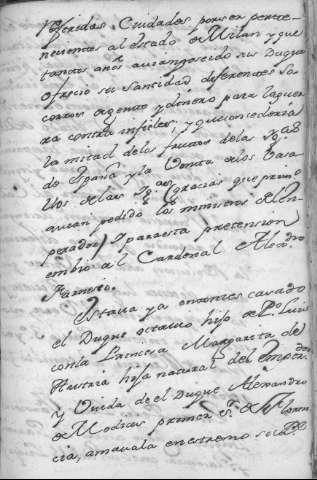 referidas Ciudades por ser pertene-
necientes al estado de Milan, y que
tantos años avian gozado sus Duques
ofrecio su Santidad diferentes so
corros de gente y dinero para la guer
ra contra infieles, y que concederia
la mitad de los frutos de las Igas
de España y la Venta de los Vasa
llos de las Igas gracias que
avian pedido los ministros del En
perador) y para esta pretension
embio al Cardenal Alexandro
Farnesio.
Estava ya entonces casado
el Duque octavio hijo de Po Luis
con la Princesa Margarita de
Austria hija natural del Emperador
y Viuda de el Duque Alexandro
de Medicis primer Sr de Floren
cia, amavala en estremo su